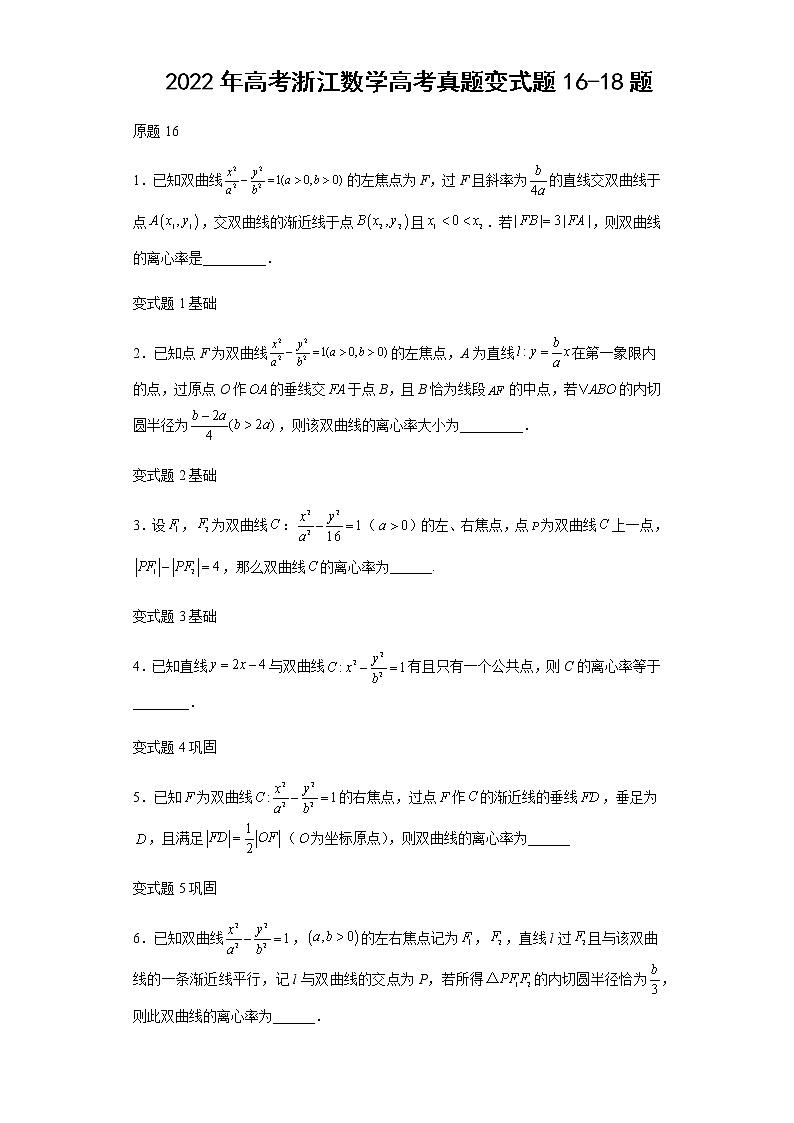 2022年高考浙江数学高考真题变式题16-18题
原题16
1．已知双曲线x²/a²−y²/b²=1(a>0,b>0)的左焦点为F，过F且斜率为b/4a的直线交双曲线于
点A(x₁,y₁)，交双曲线的渐近线于点B(x₂,y₂)且x₁<0<x₂．若|FB|=3|FA|，则双曲线
的离心率是_________．
变式题1基础
2．已知点F为双曲线x²/a²−y²/b²=1(a>0,b>0)的左焦点，A为直线l:y=b/a x在第一象限内
的点，过原点O作OA的垂线交FA于点B，且B恰为线段AF的中点，若∨ABO的内切
圆半径为b−2a/4(b>2a)，则该双曲线的离心率大小为_________．
变式题2基础
3．设F₁，F₂为双曲线C：x²/a²−y²/16=1（a>0）的左、右焦点，点P为双曲线C上一点，
|PF₁|−|PF₂|=4，那么双曲线C的离心率为______.
变式题3基础
4．已知直线y=2x−4与双曲线C:x²−y²/b²=1有且只有一个公共点，则C的离心率等于
________．
变式题4巩固
5．已知F为双曲线C:x²/a²−y²/b²=1的右焦点，过点F作C的渐近线的垂线FD，垂足为
D，且满足|FD|=1/2|OF|（O为坐标原点），则双曲线的离心率为______
变式题5巩固
6．已知双曲线x²/a²−y²/b²=1，(a,b>0)的左右焦点记为F₁，F₂，直线l过F₂且与该双曲
线的一条渐近线平行，记l与双曲线的交点为P，若所得△PF₁F₂的内切圆半径恰为b/3，
则此双曲线的离心率为______．